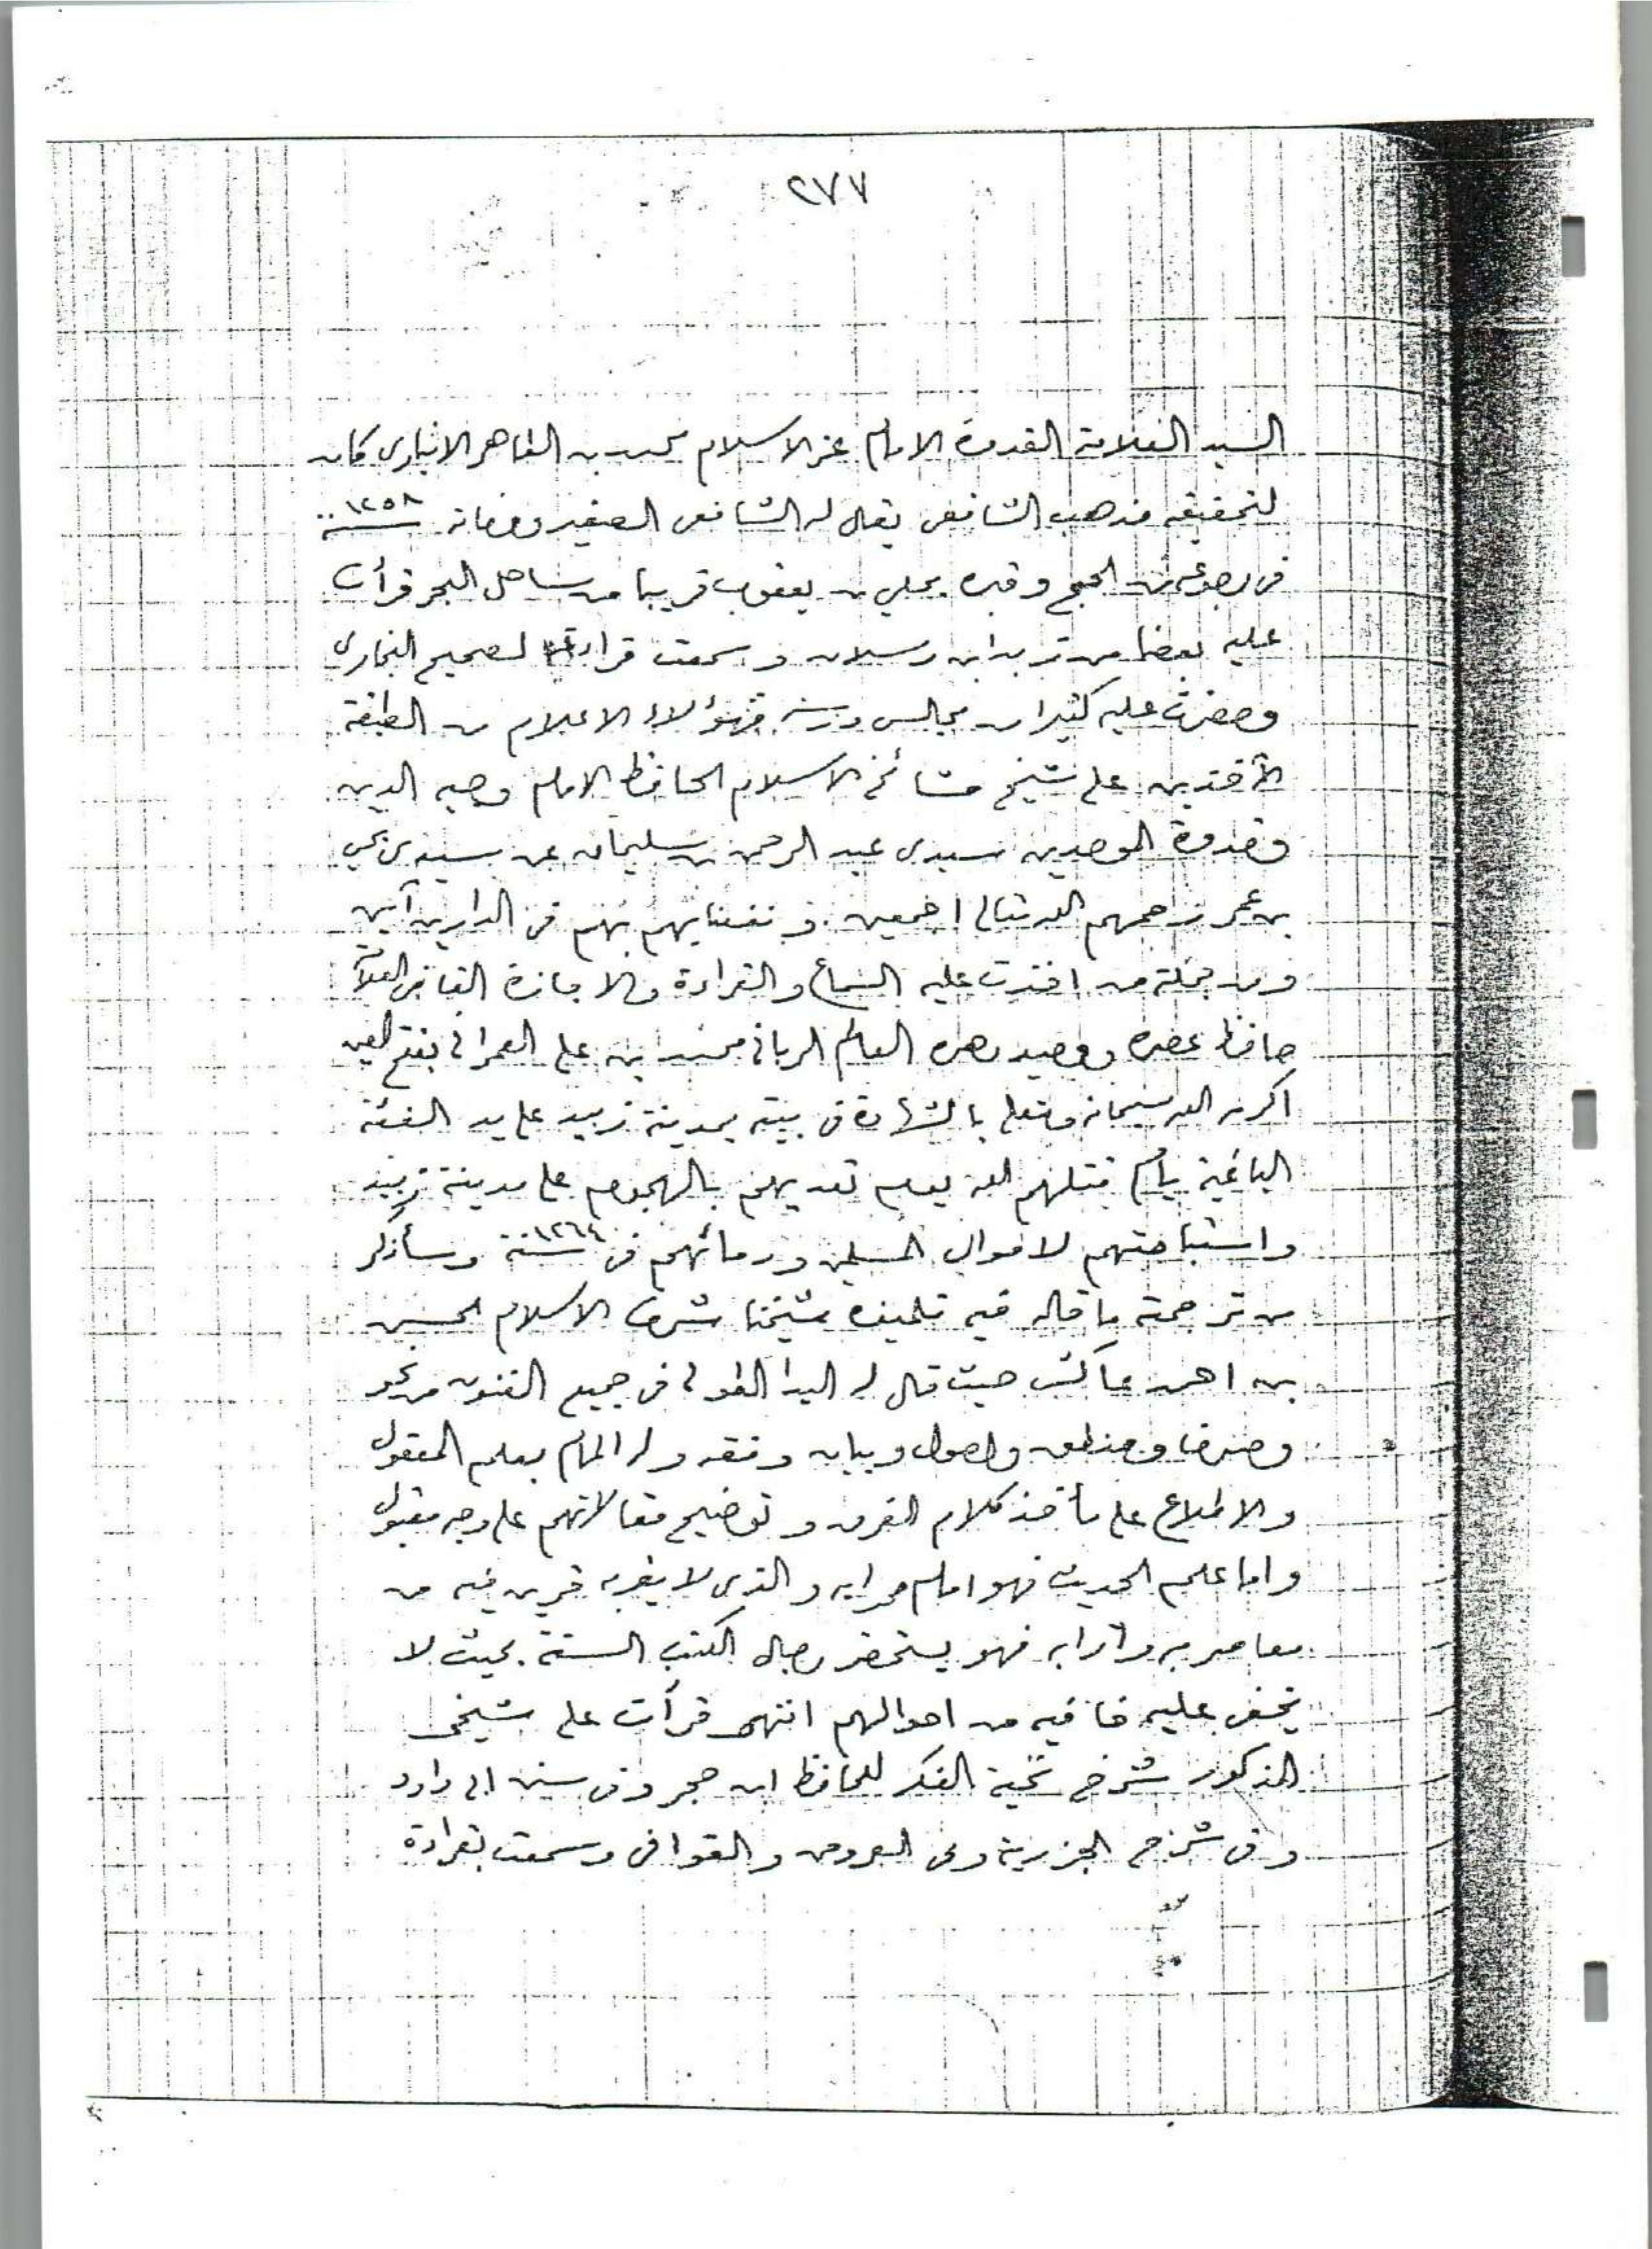 ٢٧٧
السيد العلامة القدوة الامام عز الاسلام محمد بن الطاهر الانباري كان
لتحقيقه مذهب الشافعى يقال له الشافعى الصغير وفاته سنة ١٢٥٨
فى رجوعه من الحج وقبره بحلي بن يعقوب قريبا من ساحل البحر قرأت
عليه بعضا من زبد ابن رسلان وسمعت قراءته لصحيح البخارى
وحضرت عليه كثيرا من مجالس درسه فهؤلاء الاعلام من الطبقة
الآخذين على شيخ مشائخ الاسلام الحافظ الامام وجيه الدين
وقدوة الموحدين سيدى عبد الرحمن بن سليمان عن سيدى يحي
بن عمر رحمهم الله تعالى اجمعين ونفعنا بهم فى الدارين آمين
ومن جملة من اخذت عليه السماع والقراءة والاجازة القاضى العلآ
حافظ عصره ووحيد دهره العالم الربانى محمد ابن على العمرانى بفتح العين
اكرمه الله سبحانه وتعالى بالشهادة فى بيته بمدينة زبيد على يد الفئة
الباغية يام قتلهم الله يوم تعديهم بالهجوم على مدينة زبيد
واستباحتهم لاموال المسلمين ودمائهم فى سنة ١٢٦٤ وسأذكر
من ترجمته ما قاله فيه تلميذه شيخنا شرف الاسلام الحسن
بن احمد عاكش حيث قال له اليد الطولى فى جميع الفنون من نحو
وصرف ومنطق واصول وبيان وفقه وله المام بعلم المعقول
والاطلاع على مأخذ كلام الفرق وتوضيح مقالاتهم على وجه مقبول
واما علم الحديث فهو امام محرابه والذى لا يقربه قرين فيه من
معاصريه وأترابه فهو يستحضر رجال الكتب الستة بحيث لا
تخفى عليه خافيه من احوالهم انتهى قرأت على شيخى
المذكور شرح نخبة الفكر للحافظ ابن حجر وفى سنن ابى داود
وفى شرح الجزرية وفى العروض والقوافى وسمعت بقراءة